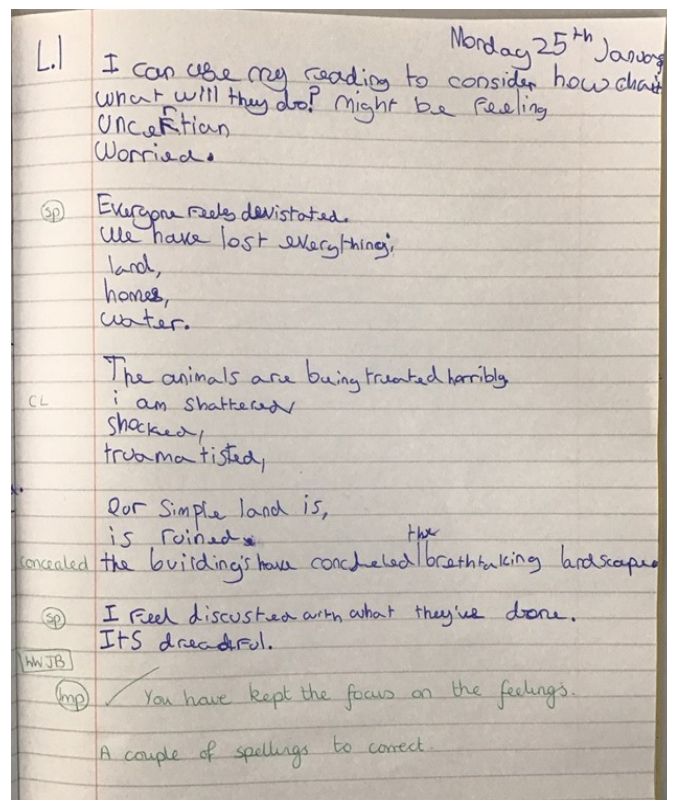 Monday 25th January
L.I I can use my reading to consider how
what will they do? might be feeling
uncertian
Worried.
sp Everyone feels devistated.
We have lost everything,
land,
homes,
water.
The animals are being treated horribly
CL i am shattered
shocked,
truamatisted,
Our simple land is,
is ruined.
the
concealed the building's have concheled breathtaking landscape
sp I feel discusted with what they've done.
ItS dreadful.
WWJB
mp ✓ You have kept the focus on the feelings.
A couple of spellings to correct.